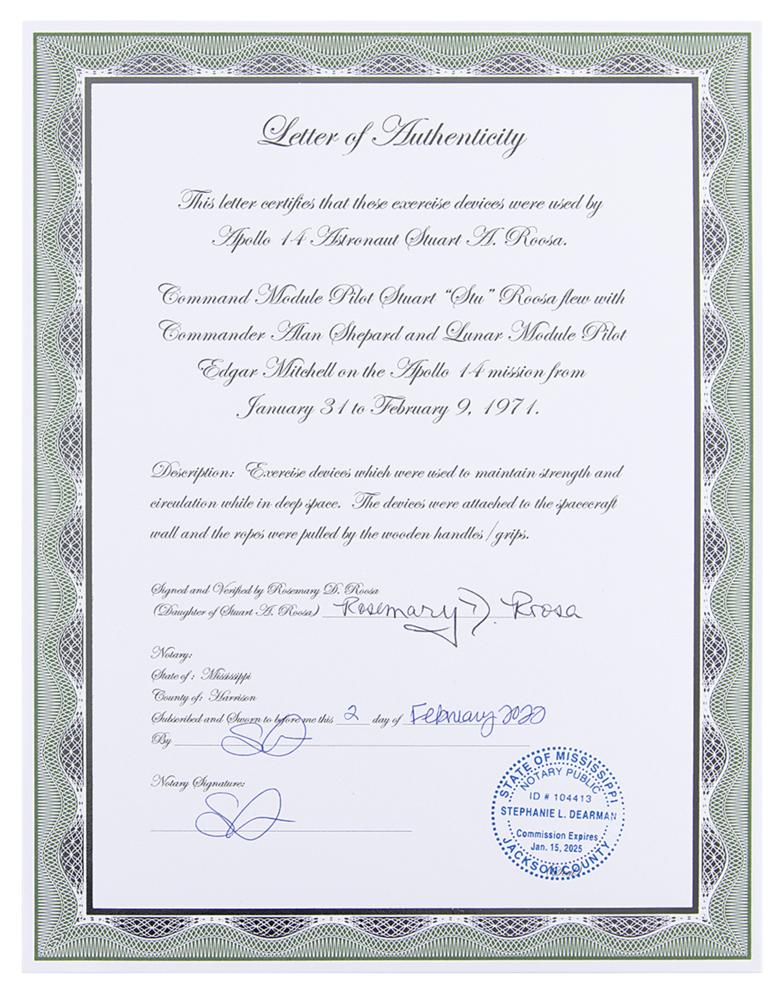 Letter of Authenticity
This letter certifies that these exercise devices were used by
Apollo 14 Astronaut Stuart A. Roosa.
Command Module Pilot Stuart “Stu” Roosa flew with
Commander Alan Shepard and Lunar Module Pilot
Edgar Mitchell on the Apollo 14 mission from
January 31 to February 9, 1971.
Description: Exercise devices which were used to maintain strength and
circulation while in deep space. The devices were attached to the spacecraft
wall and the ropes were pulled by the wooden handles/grips.
Signed and Verified by Rosemary D. Roosa
(Daughter of Stuart A. Roosa) Rosemary D. Roosa
Notary:
State of: Mississippi
County of: Harrison
Subscribed and Sworn to before me this 2 day of February 2020
By
Notary Signature:
STATE OF MISSISSIPPI
NOTARY PUBLIC
ID # 104413
STEPHANIE L. DEARMAN
Commission Expires
Jan. 15, 2025
JACKSON COUNTY